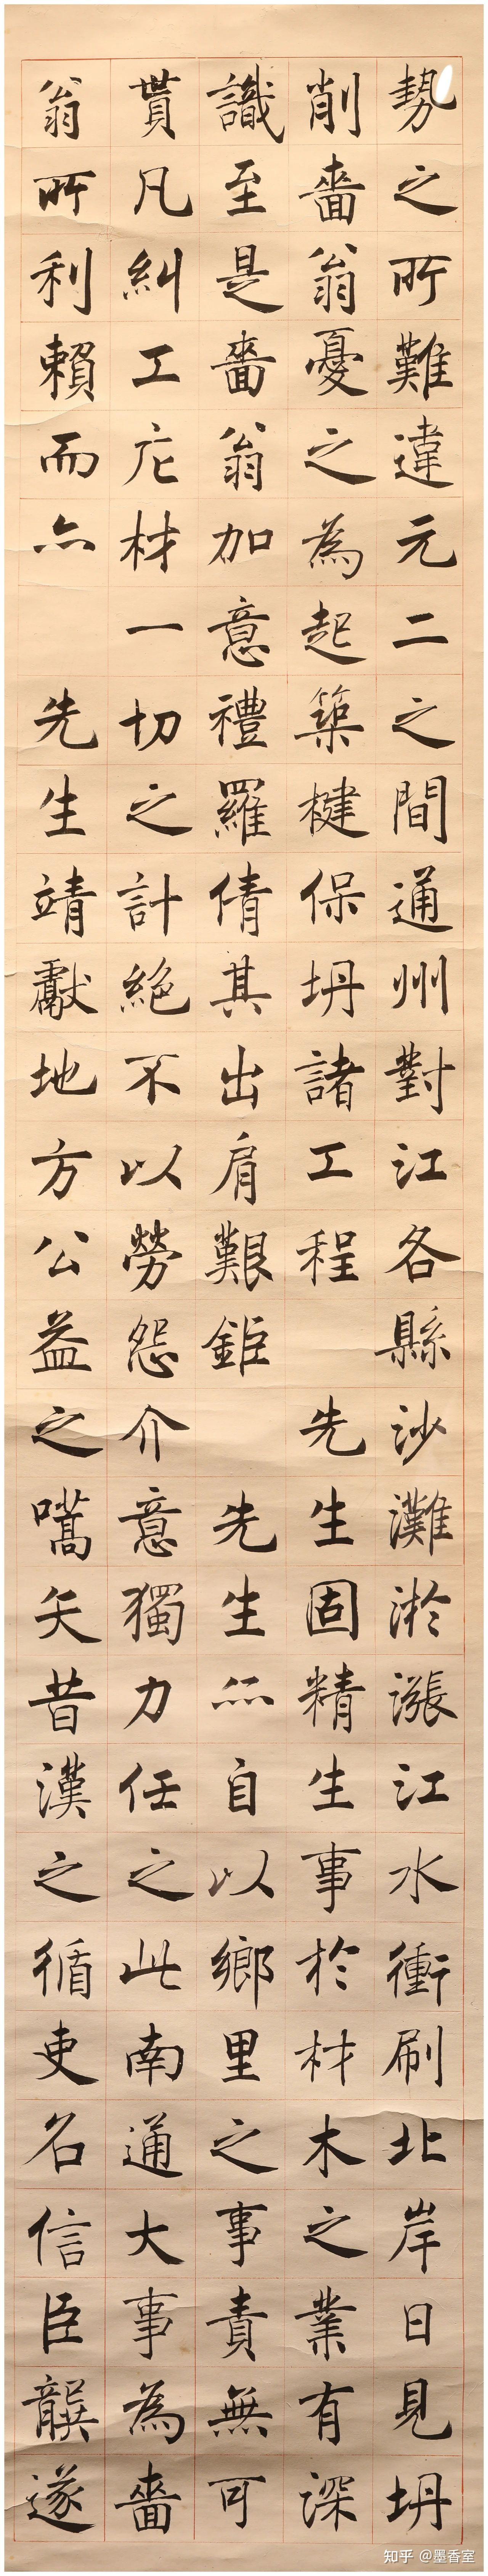 勢之所難違元二之間通州對江各縣沙灘淤漲江水衝刷北岸日見坍
削嗇翁憂之為起築楗保坍諸工程 先生固精生事於材木之業有深
識至是嗇翁加意禮羅倩其出肩艱鉅 先生亦自以鄉里之事責無可
貰凡糾工庀材一切之計絕不以勞怨介意獨力任之此南通大事為嗇
翁所利賴而亦 先生靖獻地方公益之嚆矢昔漢之循吏名信臣龔遂
知乎 @墨香室